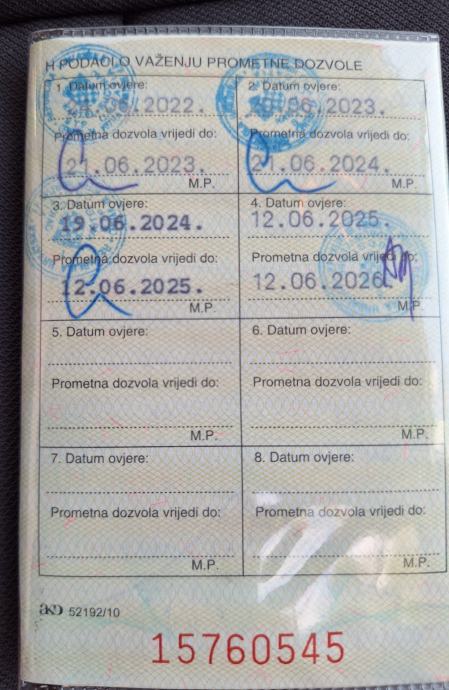 H PODACI O VAŽENJU PROMETNE DOZVOLE
1. Datum ovjere:
.06.2022.
Prometna dozvola vrijedi do:
21.06.2023.
M.P.
2. Datum ovjere:
.06.2023.
Prometna dozvola vrijedi do:
21.06.2024.
M.P.
3. Datum ovjere:
19.06.2024.
Prometna dozvola vrijedi do:
12.06.2025.
M.P.
4. Datum ovjere:
12.06.2025.
Prometna dozvola vrijedi do:
12.06.2026.
M.P.
5. Datum ovjere:
Prometna dozvola vrijedi do:
M.P.
6. Datum ovjere:
Prometna dozvola vrijedi do:
M.P.
7. Datum ovjere:
Prometna dozvola vrijedi do:
M.P.
8. Datum ovjere:
Prometna dozvola vrijedi do:
M.P.
akd 52192/10
15760545